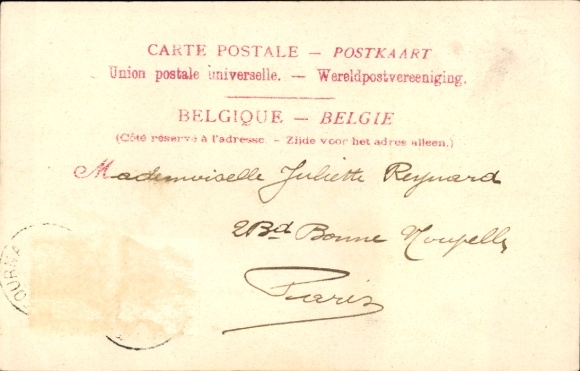 CARTE POSTALE – POSTKAART
Union postale universelle. — Wereldpostvereeniging.
BELGIQUE – BELGIE
(Côté réservé à l'adresse. - Zijde voor het adres alleen.)
Mademoiselle Juliette Reynard
2 Bd Bonne Nouvelle
Paris
OURNA